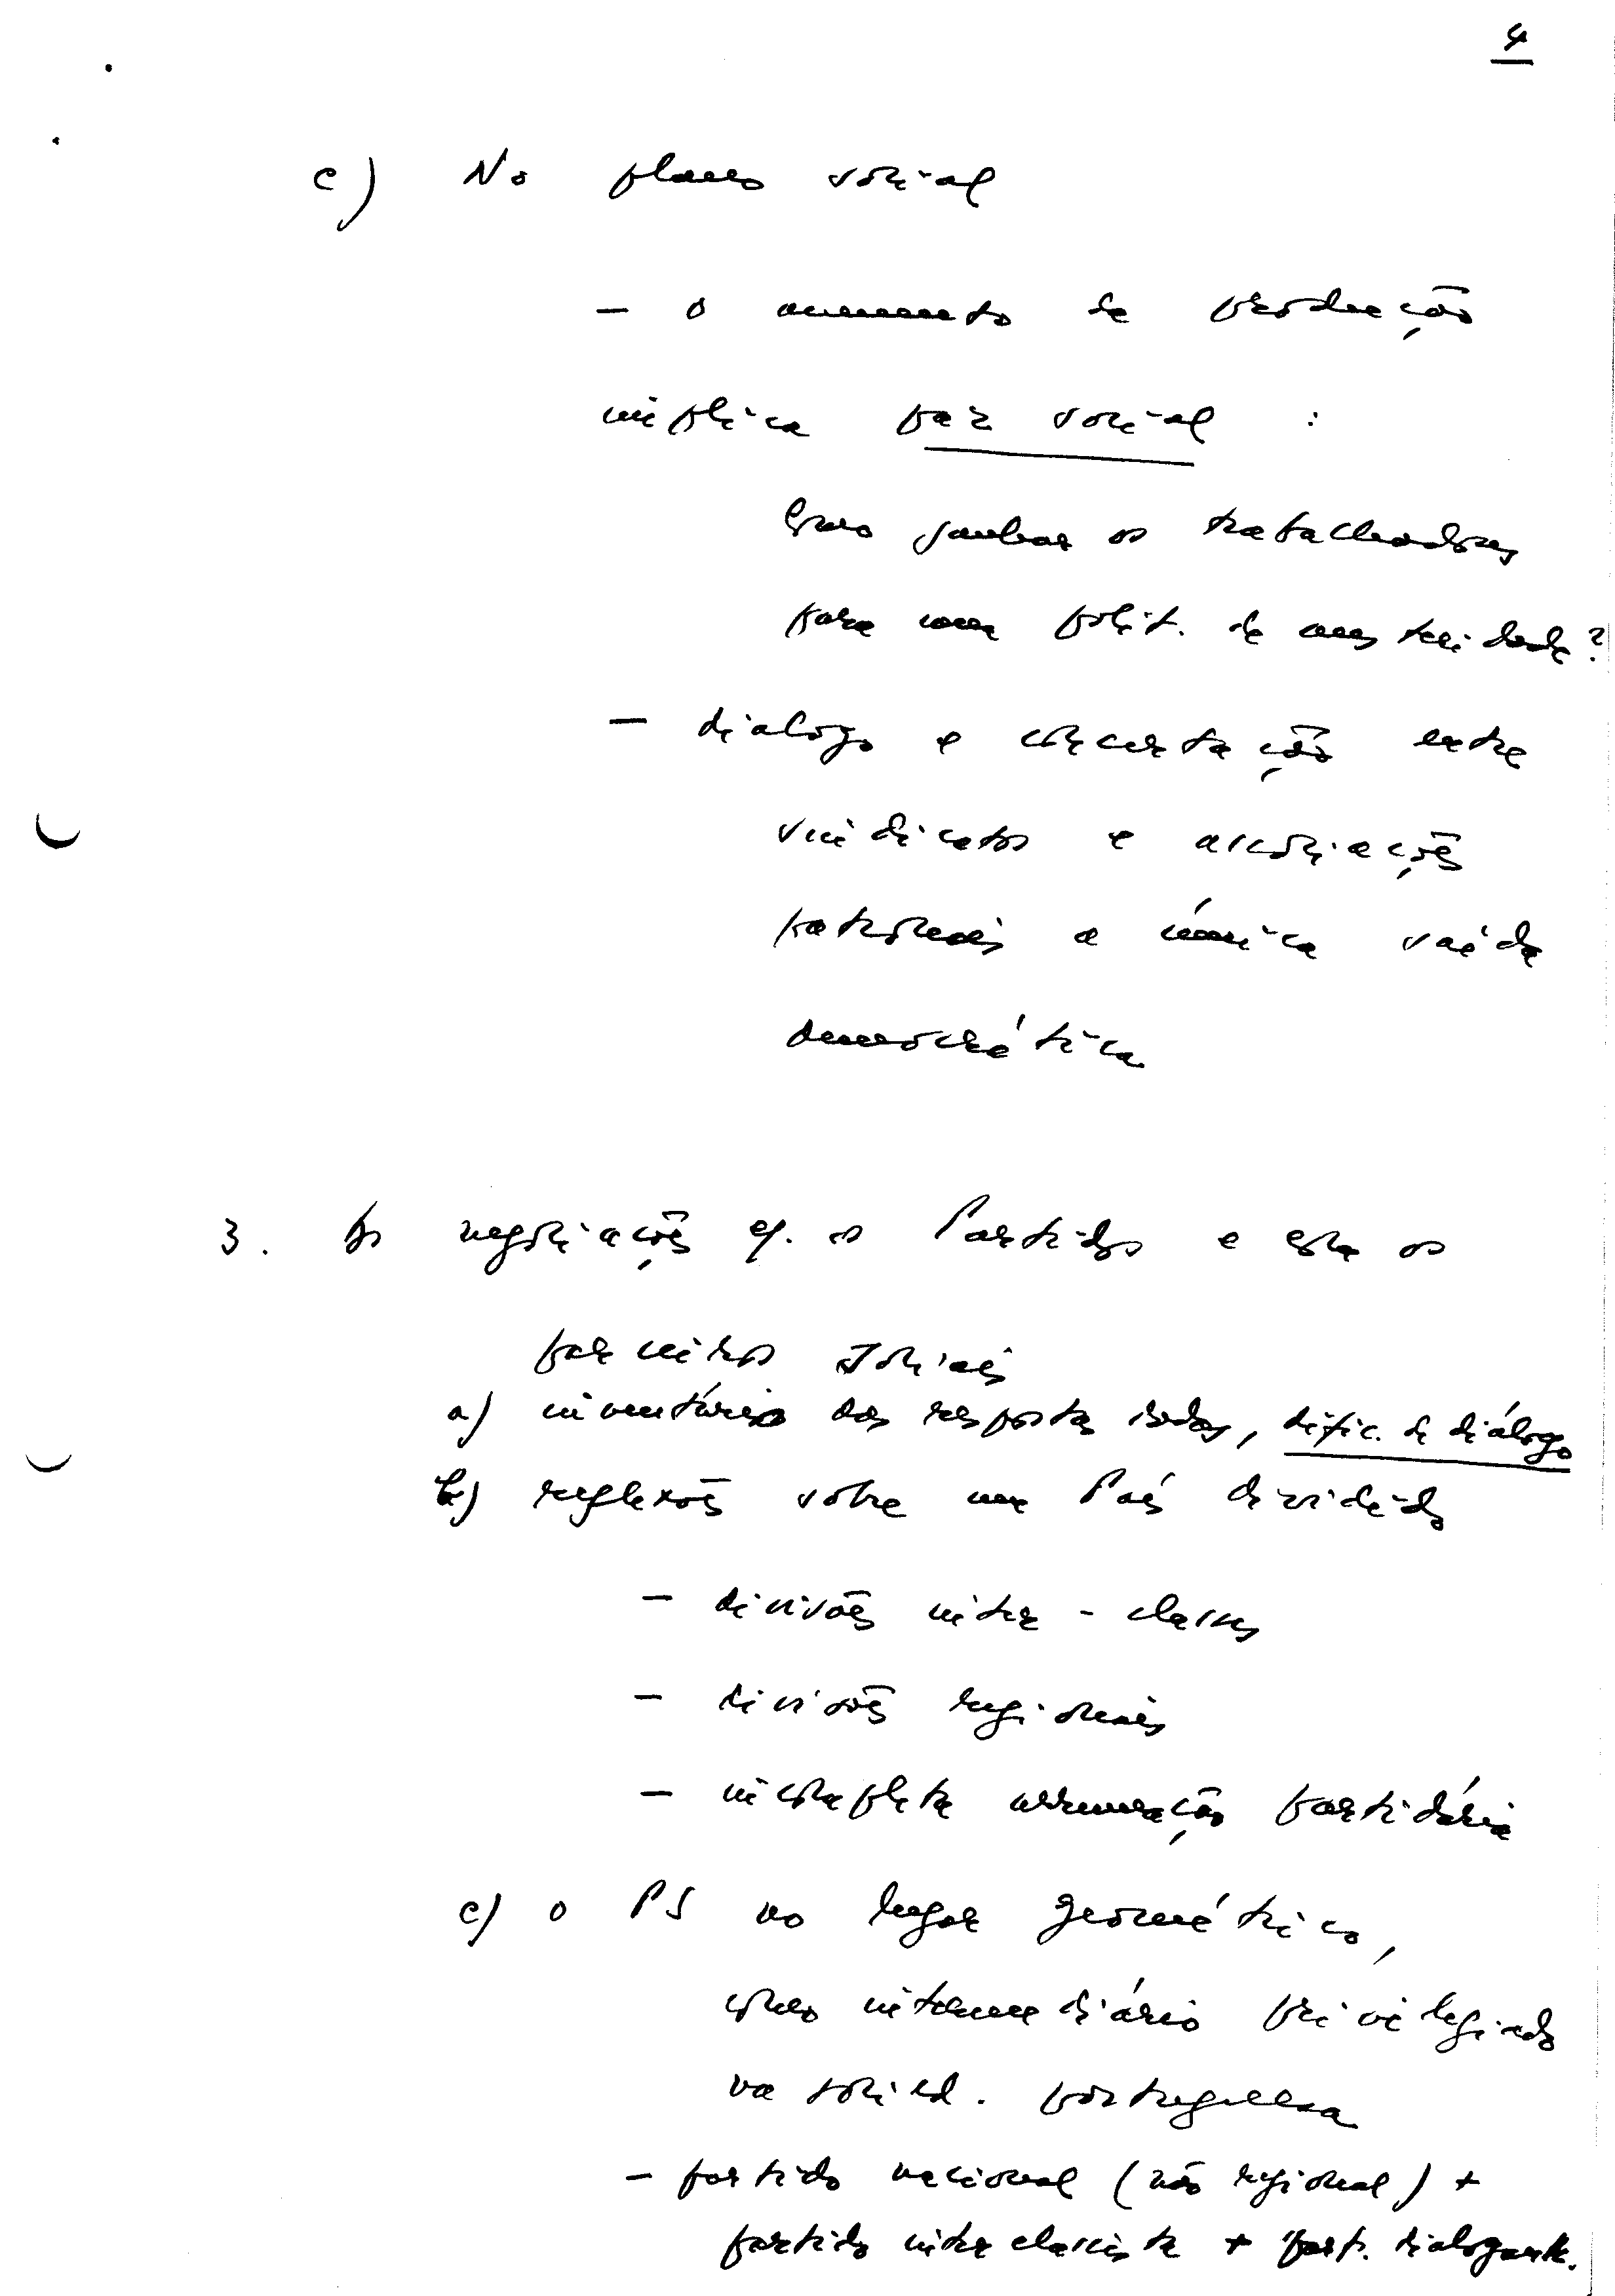 4
c) No plano social
- o aumento de produção
implica paz social :
Como ganhar os trabalhadores
para uma polít. de austeridade?
- dialogo e concertação entre
sindicatos e associações
patronais a única saída
democrática
3. As negociações c/. os Partidos e com os
parceiros sociais
a) inventário das respostas dadas, difíc. de diálogo
b) reflexões sobre um País dividido
- divisões inter-classes
- divisões regionais
- incompleta arrumação partidária
c) o PS no lugar geométrico,
como intermediário privilegiado
na socied. portuguesa
- partido nacional (não regional) +
partido interclassista + part. dialogante.